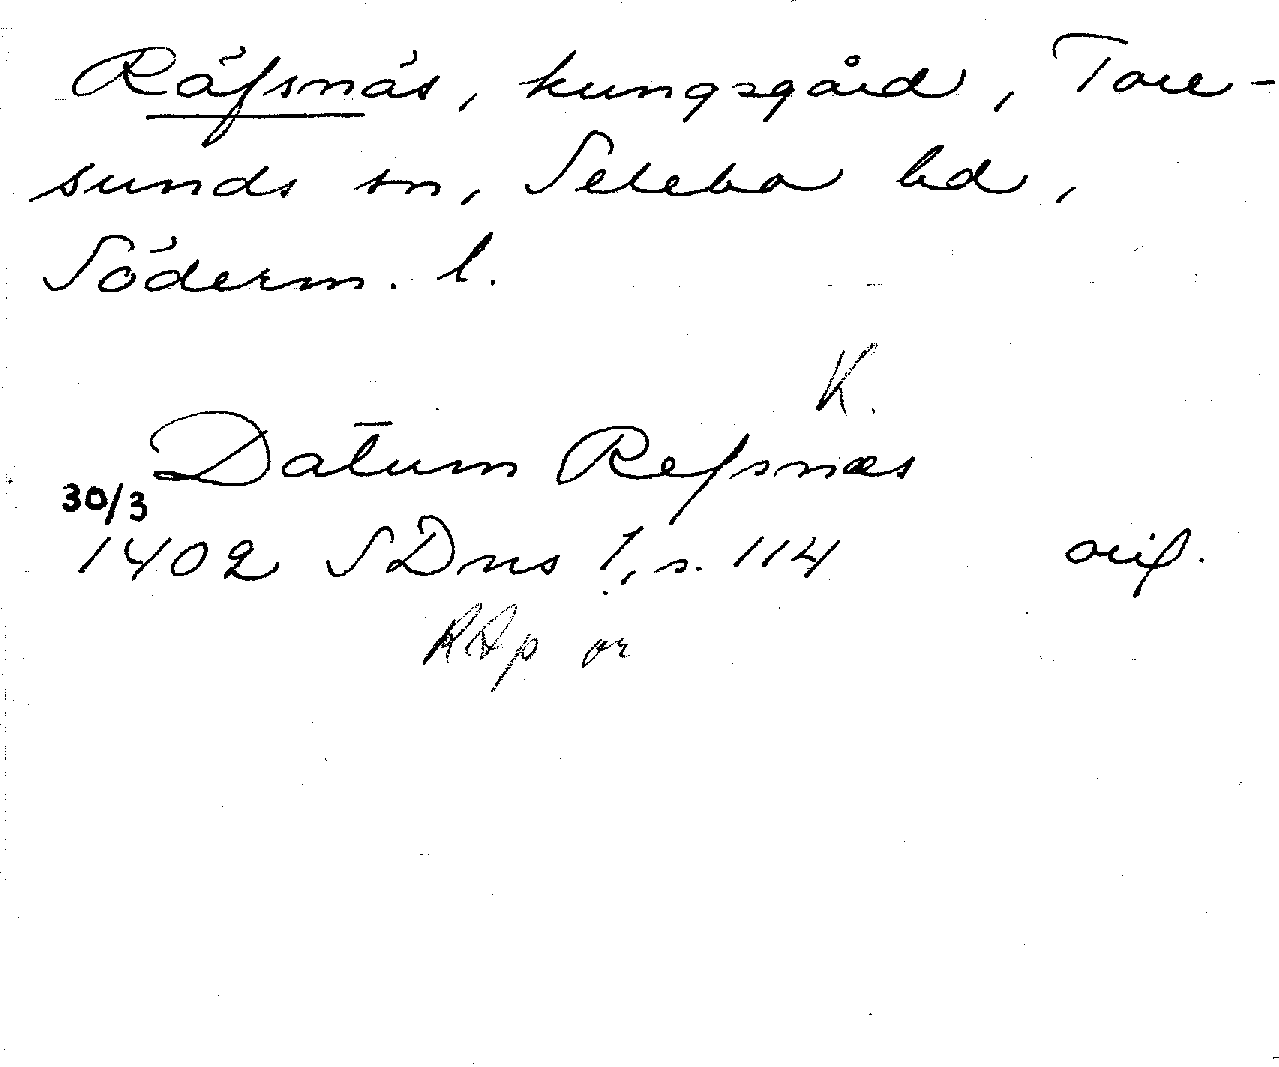 Räfsnäs, kungsgård, Tore-
sunds sn, Selebo hd,
Söderm. l.
K.
Datum Refsnæs
30/3
1402 SDns 1, s. 114 orig.
RAp or